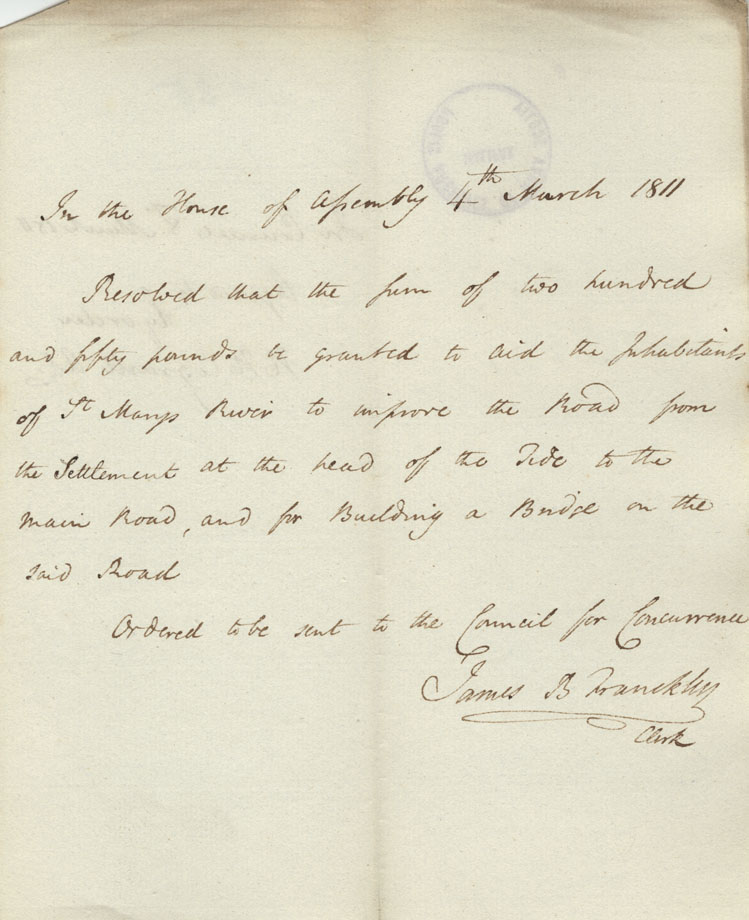 In the House of Assembly 4th March 1811
Resolved that the sum of two hundred
and fifty pounds be granted to aid the Inhabitants
of St Marys River to improve the Road from
the Settlement at the head of the Tide to the
main Road, and for Building a Bridge on the
said Road
Ordered to be sent to the Council for Concurrence
James B Franckley
Clerk